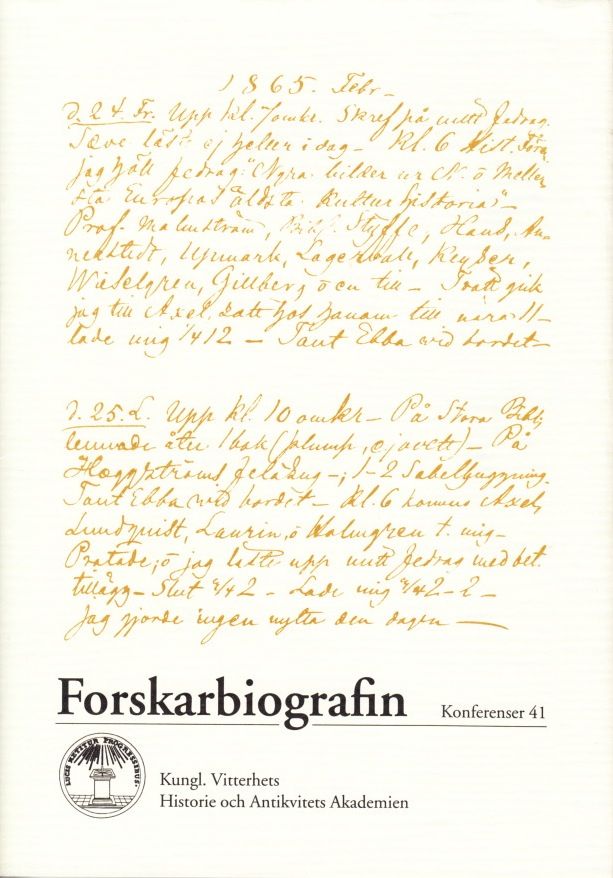 1865. Febr –
d. 24. Fr. Upp kl. 7 omkr. Skref på mitt föredrag.
läste ej heller i dag – Kl. 6 Hist. Före
jag höll föredrag: "Några bilder ur N. o Mellersta
Europas äldsta kulturhistoria" –
Prof. Malmström, Styffe, Hand, An-
nerstedt, Upmark, Lagervall, Keyser,
Wieselgren, Gillberg, o en till – gick
jag till Axel. Satt hos honom till nära 11 –
lade mig 1/4 12 – Tant Ebba vid bordet –
d. 25. L. Upp kl. 10 omkr – På Stora Bibl.
lemnade åter 1 bok – På
Hæggströms 1–2 Sabelhuggning.
Tant Ebba vid bordet – Kl. 6 kommo Axel,
Lundquist, Laurin, o Holmgren t. mig –
Pratade; o jag läste upp mitt föredrag med det.
tillägg – Slut 2 – Lade mig 2 –
Jag gjorde ingen nytta den dagen –
Forskarbiografin Konferenser 41
LUCIS RETITUR PROGRESSIBUS.
Kungl. Vitterhets
Historie och Antikvitets Akademien